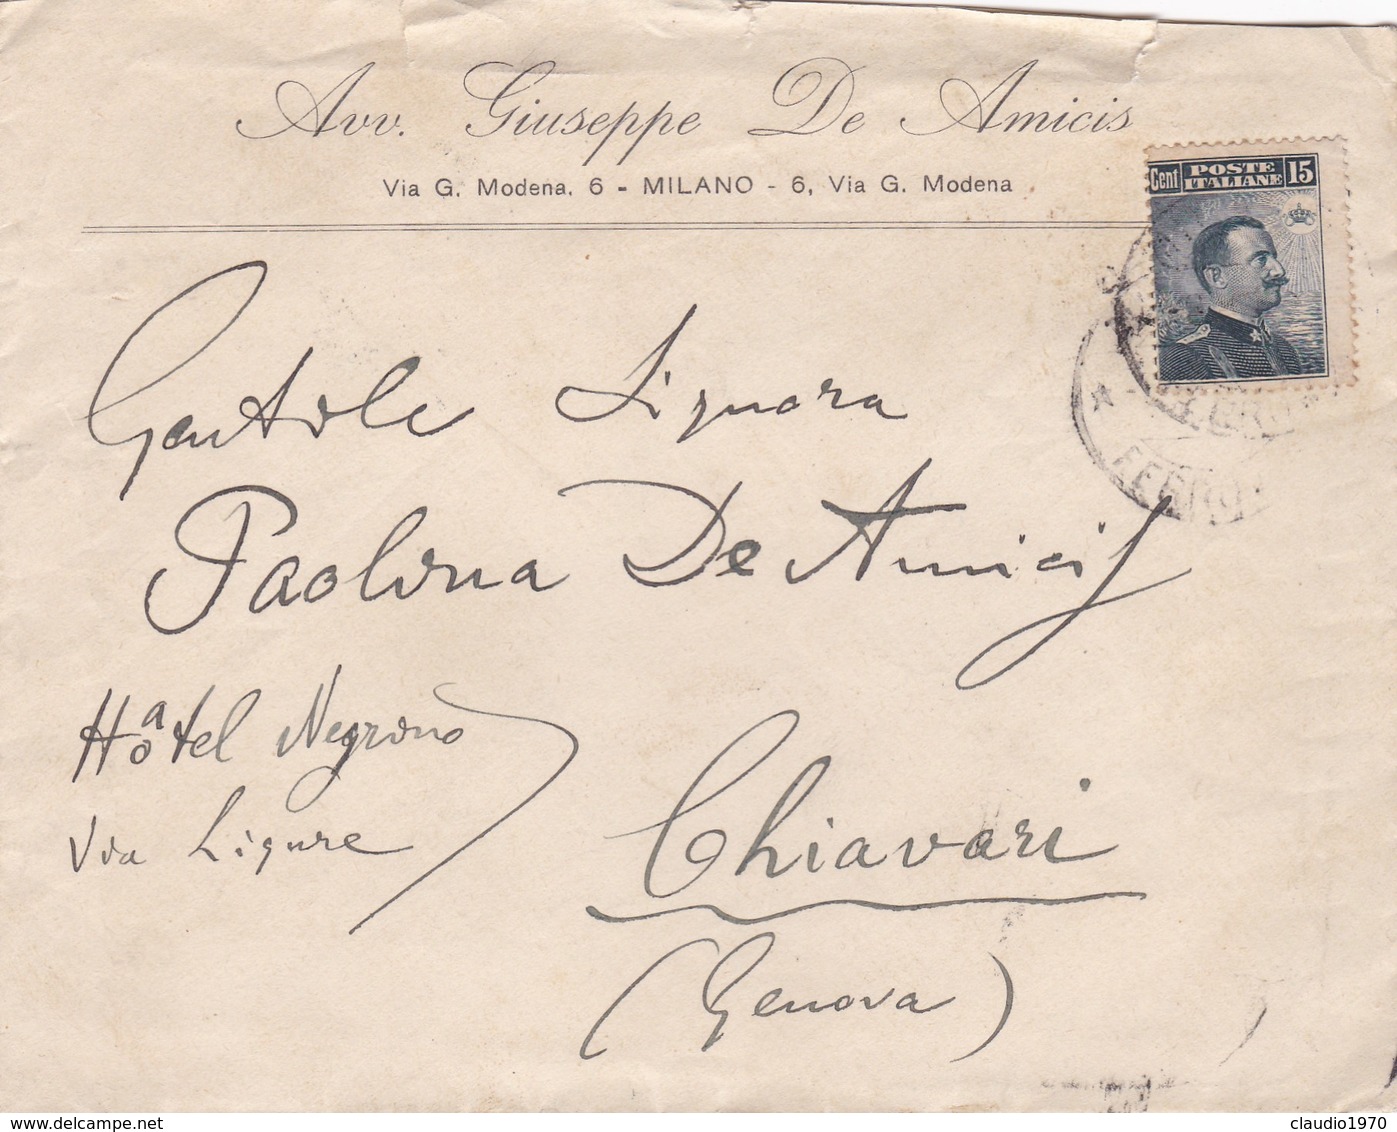 Avv. Giuseppe De Amicis
Via G. Modena, 6 - MILANO - 6, Via G. Modena
Cent POSTE ITALIANE 15
Gentile Signora
Paolina De Amicis
Hôtel Negrino
Via Ligure
Chiavari
(Genova)
delcampe.net
claudio1970